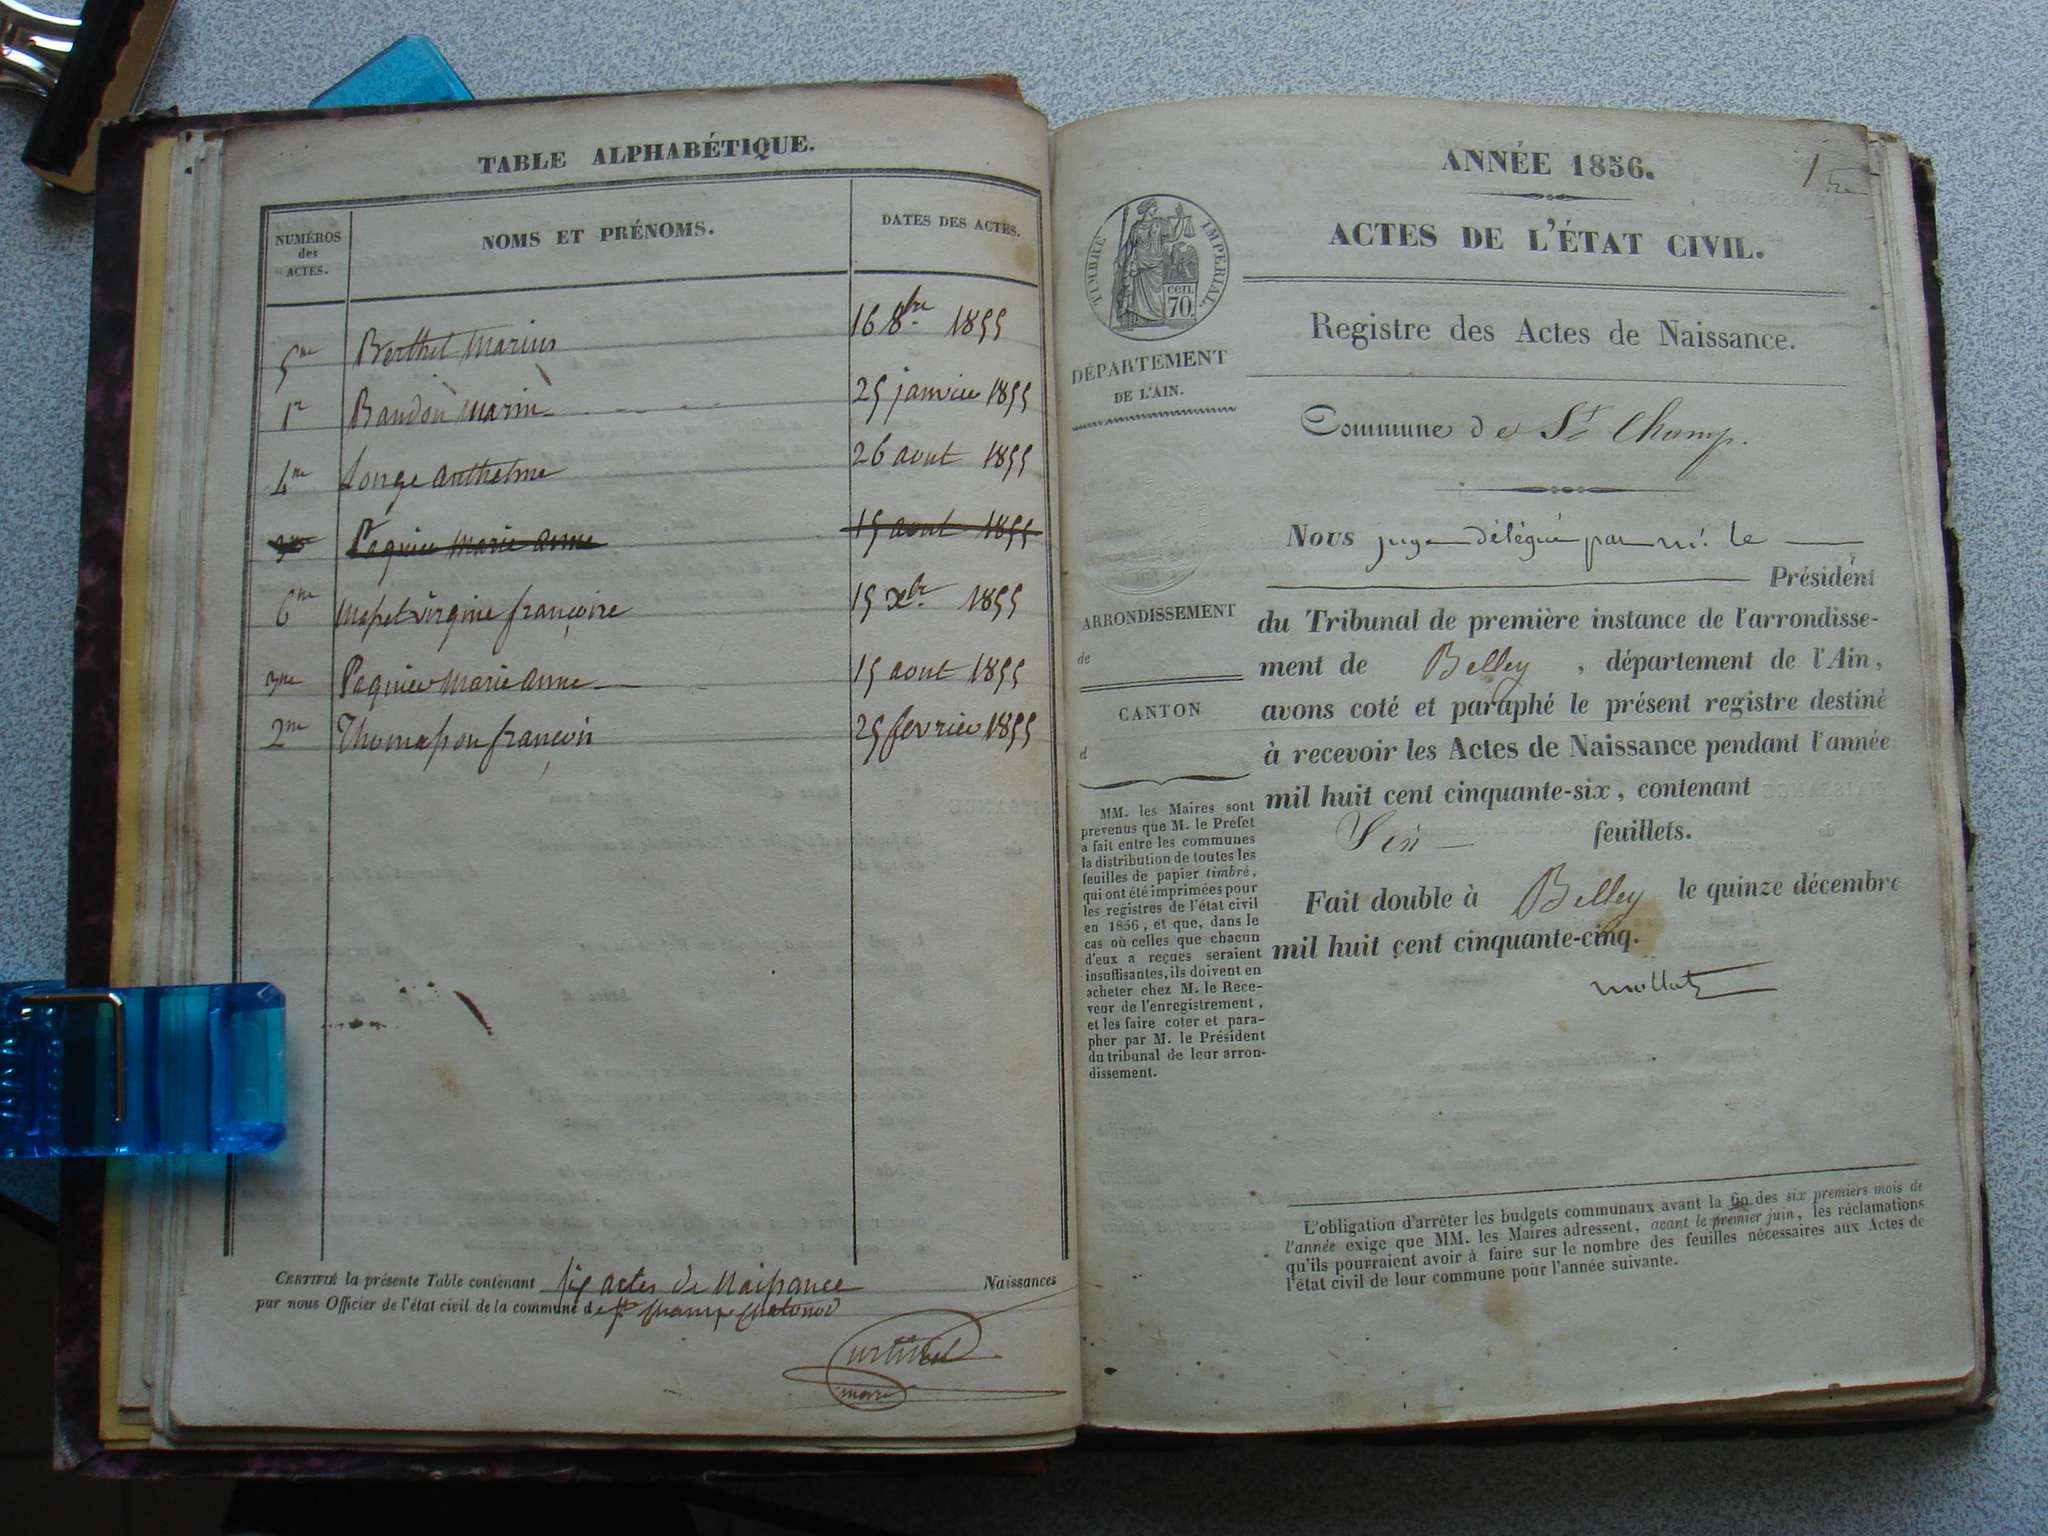 TABLE ALPHABÉTIQUE.
NUMÉROS des ACTES. NOMS ET PRÉNOMS. DATES DES ACTES.
5me Berthet Marius 16 8bre 1855
1r Baudon Marin 25 janvier 1855
4me Longe anthelme 26 aout 1855
3me Paquier Marie anne 15 aout 1855
6me virginie françoise 15 xbre 1855
3me Paquier Marie anne 15 aout 1855
2me Thomasson françois 25 fevrier 1855
CERTIFIÉ la présente Table contenant six actes de Naissance Naissances
par nous Officier de l'état civil de la commune de St Champ Chatonod
maire
1
ANNÉE 1856.
ACTES DE L'ÉTAT CIVIL.
TIMBRE IMPÉRIAL.
cen.
70.
Registre des Actes de Naissance.
DÉPARTEMENT
DE L'AIN.
Commune de St Champ.
Nous juge délégué par mr. le
Président
du Tribunal de première instance de l'arrondisse-
ment de Belley, département de l'Ain,
avons coté et paraphé le présent registre destiné
à recevoir les Actes de Naissance pendant l'année
mil huit cent cinquante-six, contenant
Six feuillets.
Fait double à Belley le quinze décembre
mil huit cent cinquante-cinq.
ARRONDISSEMENT
de
CANTON
d
MM. les Maires sont
prévenus que M. le Préfet
a fait entre les communes
la distribution de toutes les
feuilles de papier timbré,
qui ont été imprimées pour
les registres de l'état civil
en 1856, et que, dans le
cas où celles que chacun
d'eux a reçues seraient
insuffisantes, ils doivent en
acheter chez M. le Rece-
veur de l'enregistrement,
et les faire coter et para-
pher par M. le Président
du tribunal de leur arron-
dissement.
L'obligation d'arrêter les budgets communaux avant la fin des six premiers mois de
l'année exige que MM. les Maires adressent, avant le premier juin, les réclamations
qu'ils pourraient avoir à faire sur le nombre des feuilles nécessaires aux Actes de
l'état civil de leur commune pour l'année suivante.